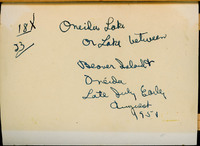 18X
23
Oneida Lake
or Lake between
Beaver
Oneida
Late July Early
August
1951